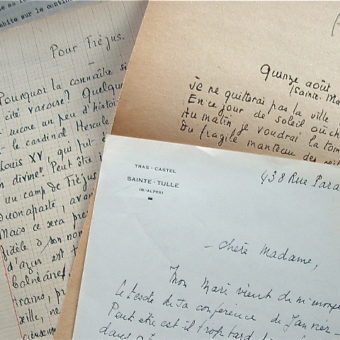 habite sur le contin
Pour Fréjus.
Pourquoi la connaître si
cité varoise? Quelque
aucun un peu d'histoire
le cardinal Hercule
Louis XV, qui fut
divin". Peut être
un camp de Fréjus
Bonaparte, avant
Mais ce sera pr
fidèle à son nom
d'azur est
balnéaires
trains, p
ville, n
Quinze août
(Sainte-Ma
Je ne quitterai pas la ville
En ce jour de soleil où ch
Au matin je voudrai la tom
Du fragile manteau des
TRAS-CASTEL
SAINTE-TULLE
(B.-ALPES)
438 Rue Para
Chère Madame,
Mon Mari vient de m'envoye
le texte de ta conférence de Janvier
Peut être est il trop tard
dans